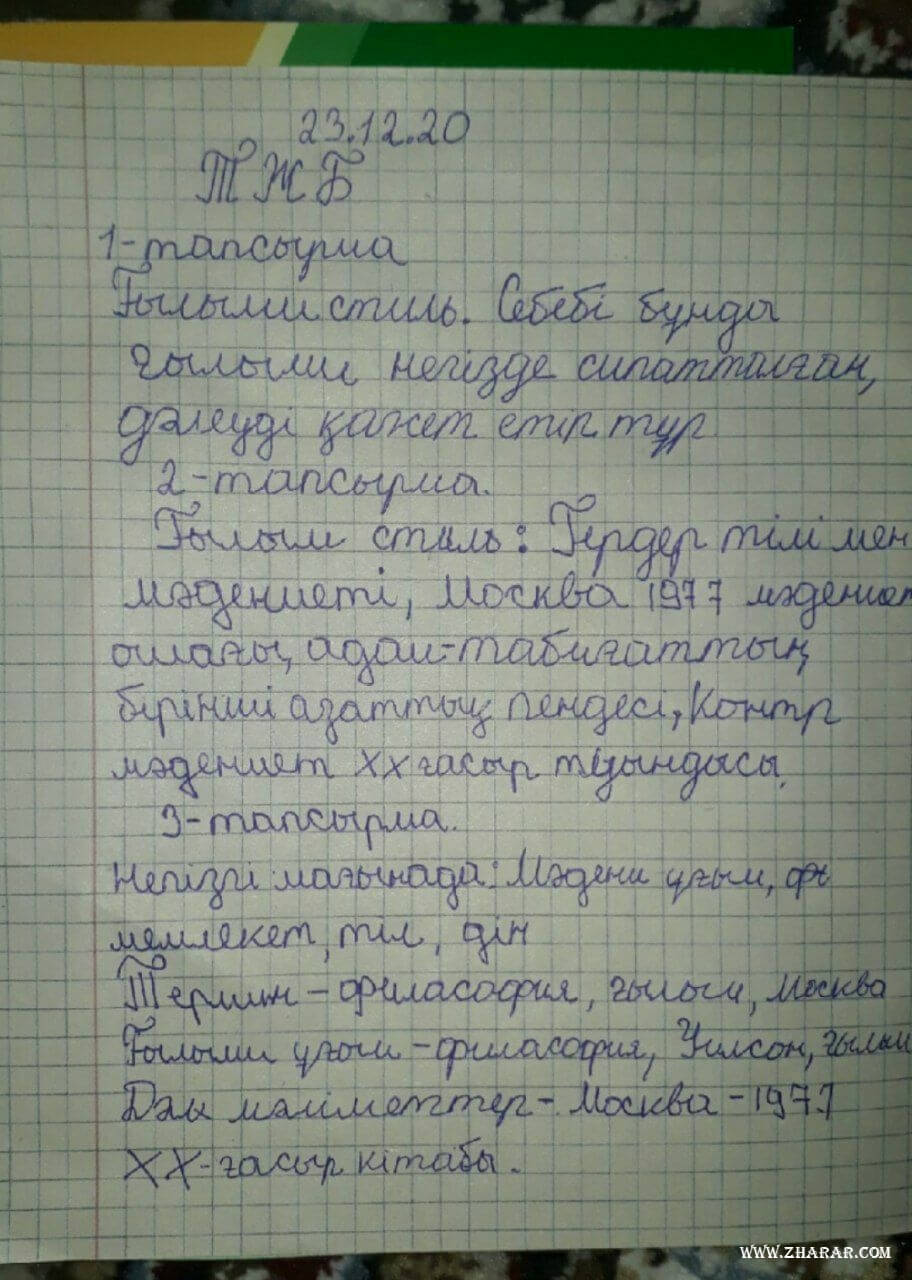 23.12.20
ТЖБ
1-тапсырма
Ғылыми стиль. Себебі бұнды
ғылыми негізде сипатталған,
дәлеуді қажет етіп тұр
2-тапсырма.
Ғылым стиль: Гердер тілі мен
мәдениеті, Москва 1977 мәдениет
ошағы, адам-табиғаттың
бірінші азаттық пендесі, Контр
мәдениет ХХ ғасыр туындысы.
3-тапсырма.
Негізгі мағынада: Мәдени ұғым,
мемлекет, тіл, дін
Термин - филасофия, ғылым, Москва
Ғылыми ұғым - филасофия, Уилсон, ғылым
Дәл мәліметтер - Москва - 1977
ХХ-ғасыр кітабы.
WWW.ZHARAR.COM